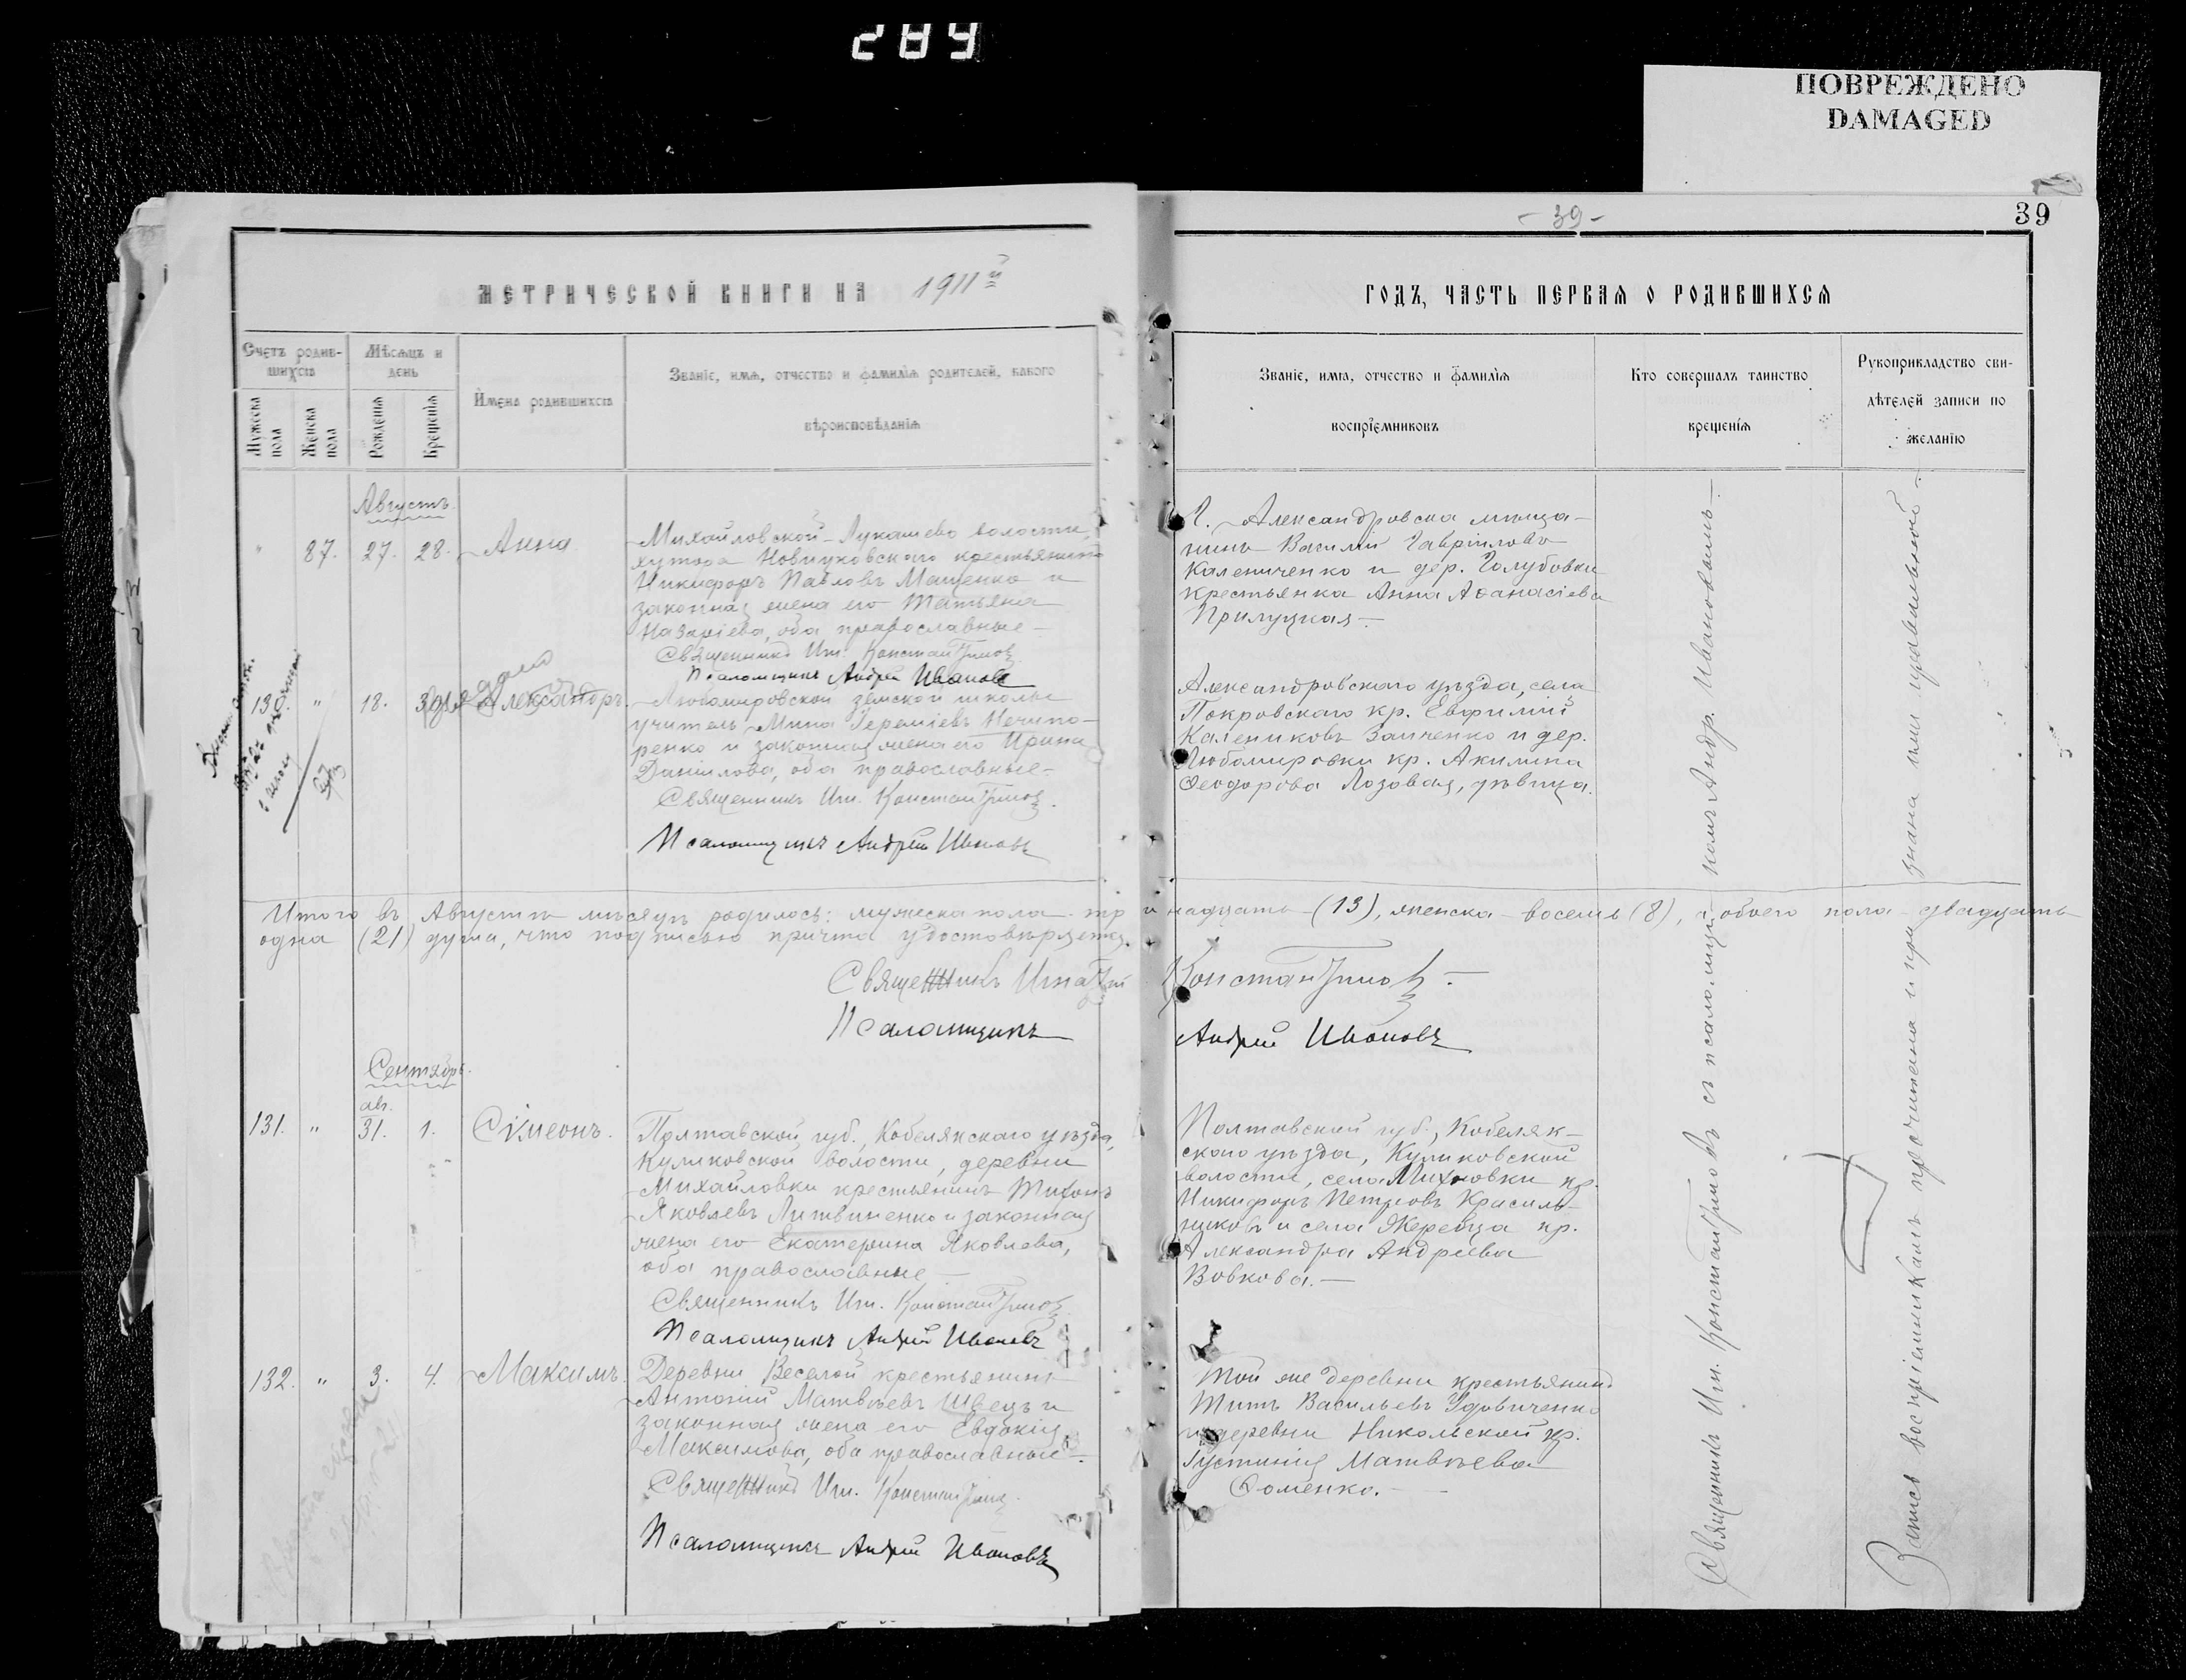 289
ПОВРЕЖДЕНО
DAMAGED
- 39 -
39
МЕТРИЧЕСКОЙ КНИГИ НА 1911й
Счетъ родив-
шихся
Мѣсяцъ и
день
Мужеска
пола
Женска
пола
Рожденія
Крещенія
Имена родившихся
Званіе, имя, отчество и фамилія родителей, какого
вѣроисповѣданія
Августъ.
" 87. 27. 28. Анна.
Михайловской-Лукашево волости,
хутора крестьянинъ
Никифоръ Павловъ Мащенко и
законная жена его Татьяна
Назаріева, оба православные -
Священникъ Иг. Константиновъ
Псаломщикъ Андрей Ивановъ
130. " 18. Александръ.
Любомировской земской школы
учитель Мина Іереміевъ Нечипо-
ренко и законная жена его Ирина
Даніилова, оба православные -
Священникъ Иг. Константиновъ.
Псаломщикъ Андрей Ивановъ
Итого въ Августѣ мѣсяцѣ родилось: мужеска пола три
надцать (13), женска - восемь (8), а обоего пола - двадцать
одна (21) душа, что подписью причта удостовѣряется.
Священникъ Игнатій Константиновъ -
Псаломщикъ Андрей Ивановъ
Сентябрь.
131. " авг. 31. 1. Сімеонъ.
Полтавской губ., Кобелякскаго уѣзда,
Куликовской волости, деревни
Михайловки крестьянинъ Тихонъ
Яковлевъ Литвиненко и законная
жена его Екатерина Яковлева,
оба православные -
Священникъ Иг. Константиновъ
Псаломщикъ Андрей Ивановъ
132. " 3. 4. Максимъ.
Деревни Веселой крестьянинъ
Антоній Матвѣевъ Швецъ и
законная жена его Евдокія
Максимова, оба православные -.
Священникъ Иг. Константиновъ
Псаломщикъ Андрей Ивановъ
ГОДЪ, ЧАСТЬ ПЕРВАЯ О РОДИВШИХСЯ
Званіе, имя, отчество и фамилія
воспріемниковъ
Кто совершалъ таинство
крещенія
Рукоприкладство сви-
дѣтелей записи по
желанію
Г. Александровска мѣща-
нинъ Василій Гавріиловъ
Калениченко и дер. Голубовки
крестьянка Анна Аѳанасіева
Прилуцкая -
Александровскаго уѣзда, села
Покровскаго кр. Евфимій
Калениковъ Заиченко и дер.
Любомировки кр. Акилина
Ѳеодорова Лозовая, дѣвица.
Полтавской губ., Кобеляк-
скаго уѣзда, Куликовской
волости, села кр.
Никифоръ Петровъ Красиль-
никовъ и села Жеребца кр.
Александра Андреева
Вовкова. -
Той же деревни крестьянинъ
Титъ Васильевъ Удовиченко
и деревни Никольской кр.
Іустинія Матвѣева
Ѳоменко. -
Священникъ Иг. Константиновъ съ псаломщикомъ Андр. Ивановымъ -
Запись воспріемникамъ прочитана и признана ими правильной -